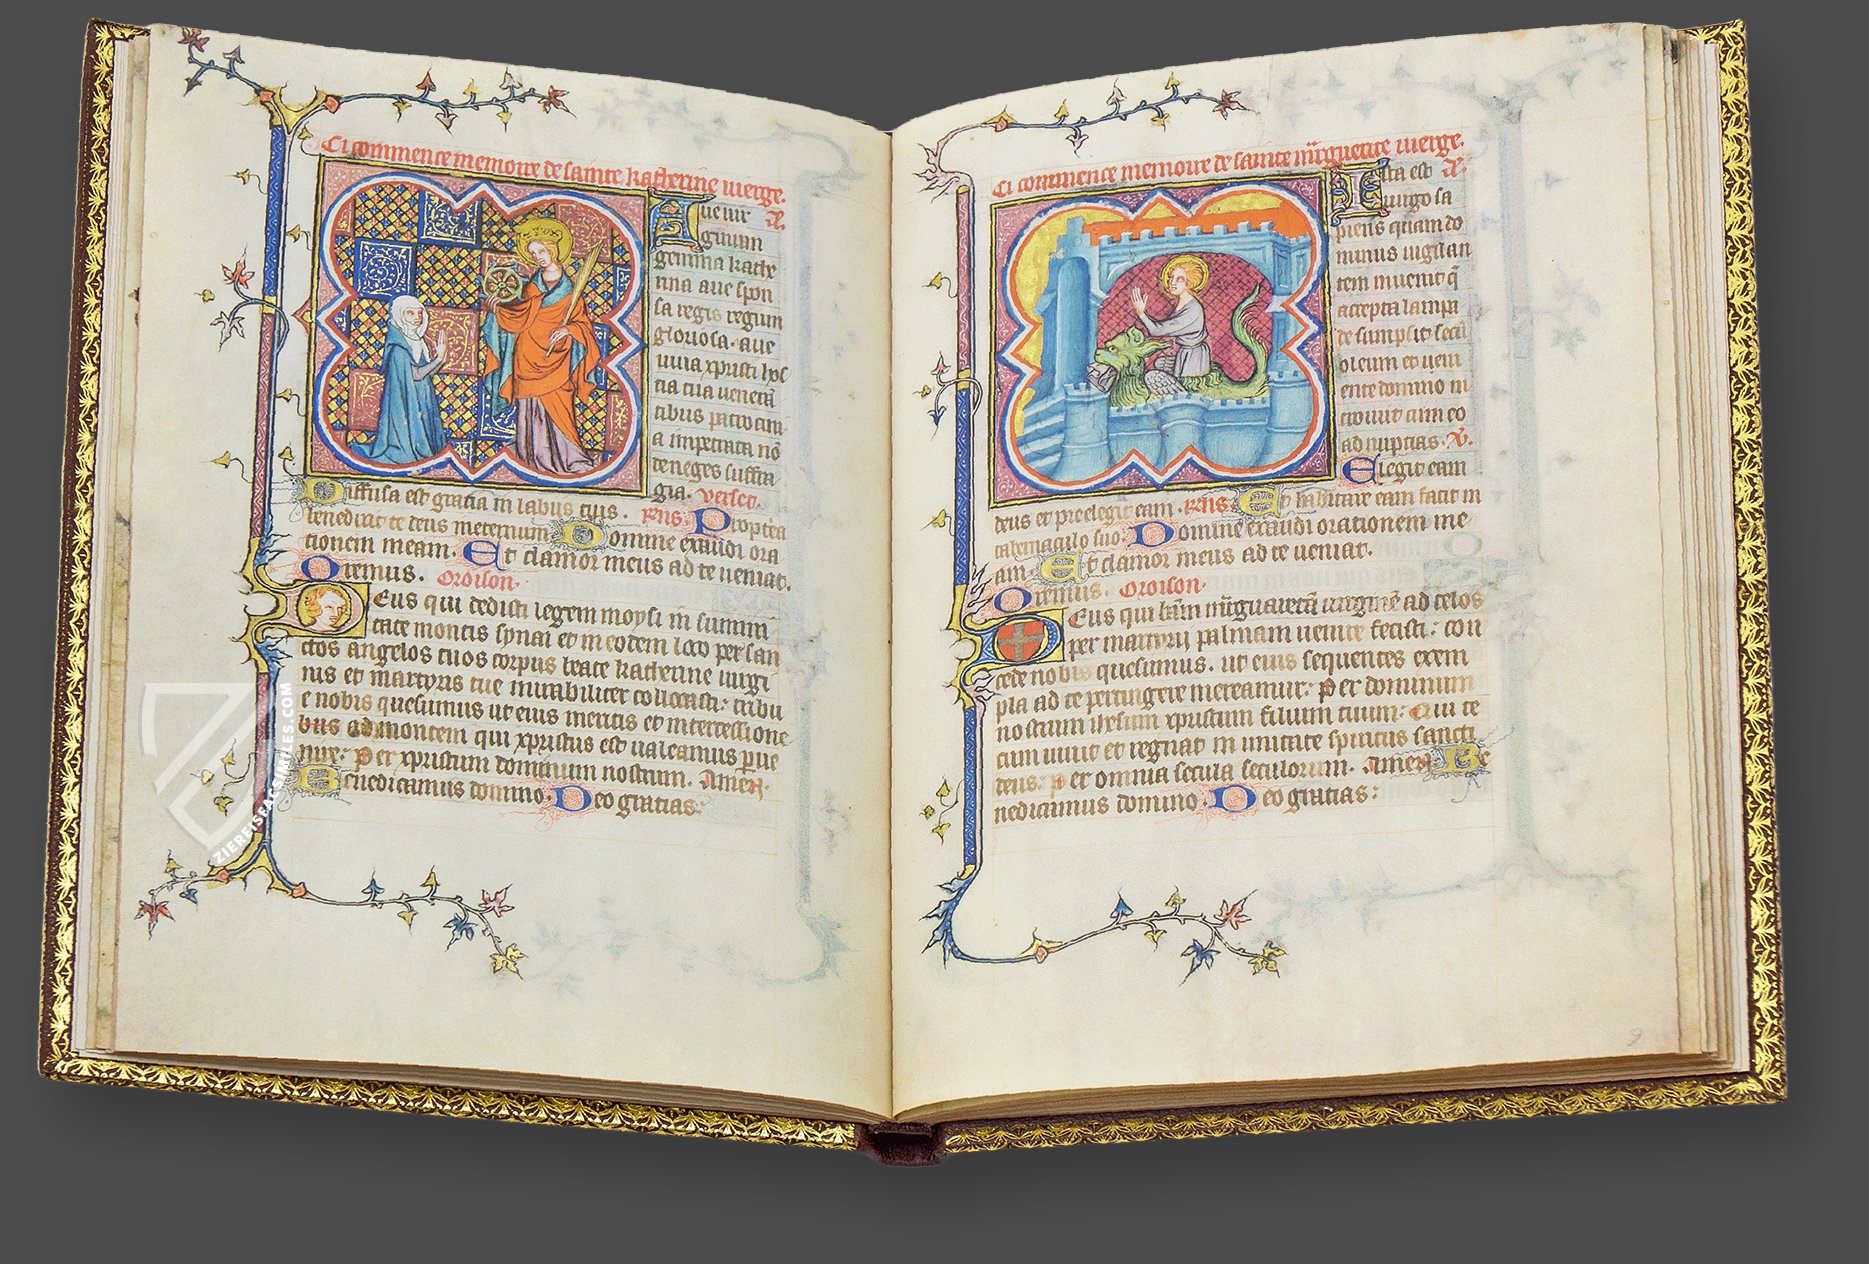 Ci commence memoire de sainte katherine vierge.
Aue uir
ginum
gemma kathe
rina aue spon
sa regis regum
gloriosa. aue
uiua xpisti hos
tia tua ueneran
tibus patrocini
a impetrata nō
deneges suffra
gia. verset.
Diffusa est gracia in labiis tuis. Rñs. Propterea
benedixit te deus in eternum Domine exaudi ora
tionem meam. Et clamor meus ad te ueniat.
Oremus. Oroison.
Deus qui dedisti legem moysi in summi
tate montis synai et in eodem loco per san
ctos angelos tuos corpus beate katherine uirgi
nis et martyris tue mirabiliter collocasti: tribu
e nobis quesumus ut eius meritis et intercessione
ad montem qui xpistus est ualeamus p̄ue
nire: Per xpistum dominum nostrum. Amen.
Benedicamus domino. Deo gratias.
Ci commence memoire de sainte m̄guerite vierge.
Ista est
uirgo sa
piens quam do
minus uigilan
tem inuenit q̄
accepta lampa
de sumpsit secū
oleum et ueni
ente domino in
troiuit cum eo
ad nuptias. V.
Elegit eam
deus et preelegit eam. Rñs. Et habitare eam facit in
tabernaculo suo. Domine exaudi orationem me
am. Et clamor meus ad te ueniat.
Oremus. Oroison.
Deus qui beatam m̄garetā uirginē ad celos
per martyrii palmam uenire fecisti: con
cede nobis quesumus. ut eius sequentes exem
pla ad te pertingere mereamur: Per dominum
nostrum ihesum xpistum filium tuum: Qui te
cum uiuit et regnat in unitate spiritus sancti
deus: Per omnia secula seculorum. Amen. Be
nedicamus domino. Deo gratias:
9
ZIEREISFACSIMILES.COM